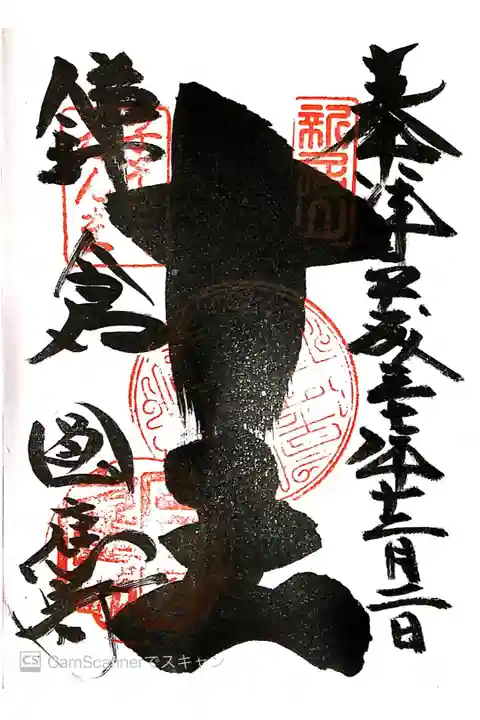 奉拝 平成廿七年十二月二日
新居山
十王
鎌倉 圓應寺
CS CamScannerでスキャン